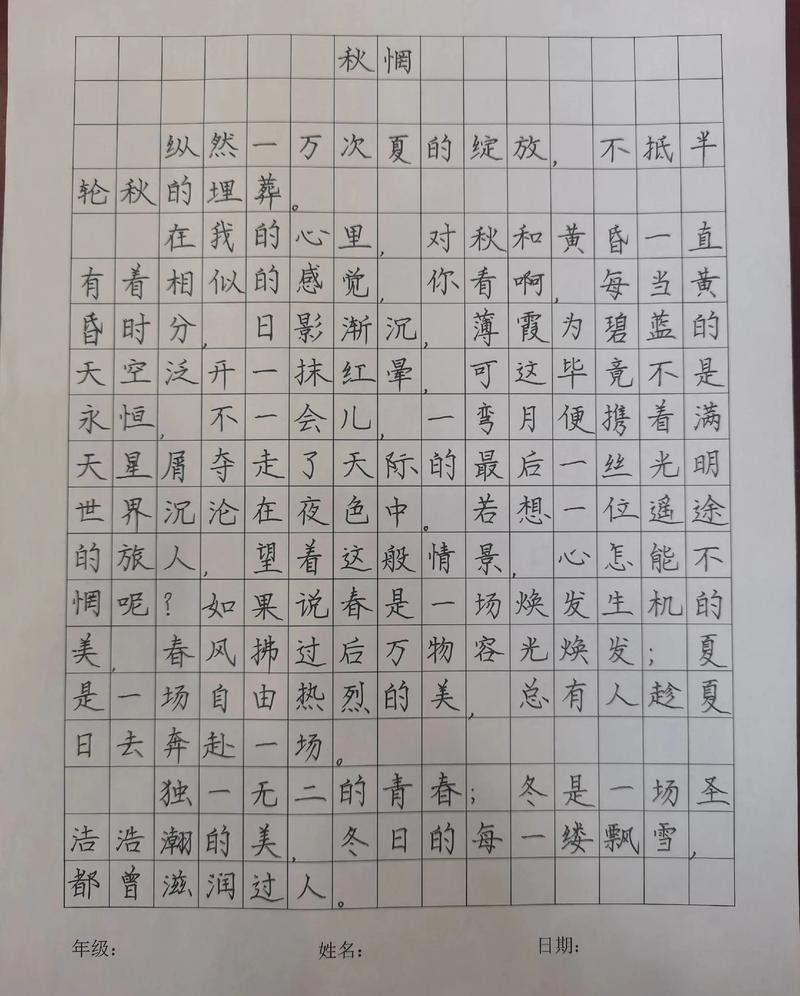 秋惘
纵然一万次夏的绽放，不抵半
轮秋的埋葬。
在我的心里，对秋和黄昏一直
有着相似的感觉，你看啊，每当黄
昏时分，日影渐沉，薄霞为碧蓝的
天空泛开一抹红晕，可这毕竟不是
永恒，不一会儿，一弯月便携着满
天星屑夺走了天际的最后一丝光明
世界沉沦在夜色中。若想一位遥途
的旅人，望着这般情景，心怎能不
惘呢？如果说春是一场焕发生机的
美，春风拂过后万物容光焕发；夏
是一场自由热烈的美，总有人趁夏
日去奔赴一场。
独一无二的青春；冬是一场圣
洁浩瀚的美，冬日的每一缕飘雪，
都曾滋润过人。
年级： 姓名： 日期：